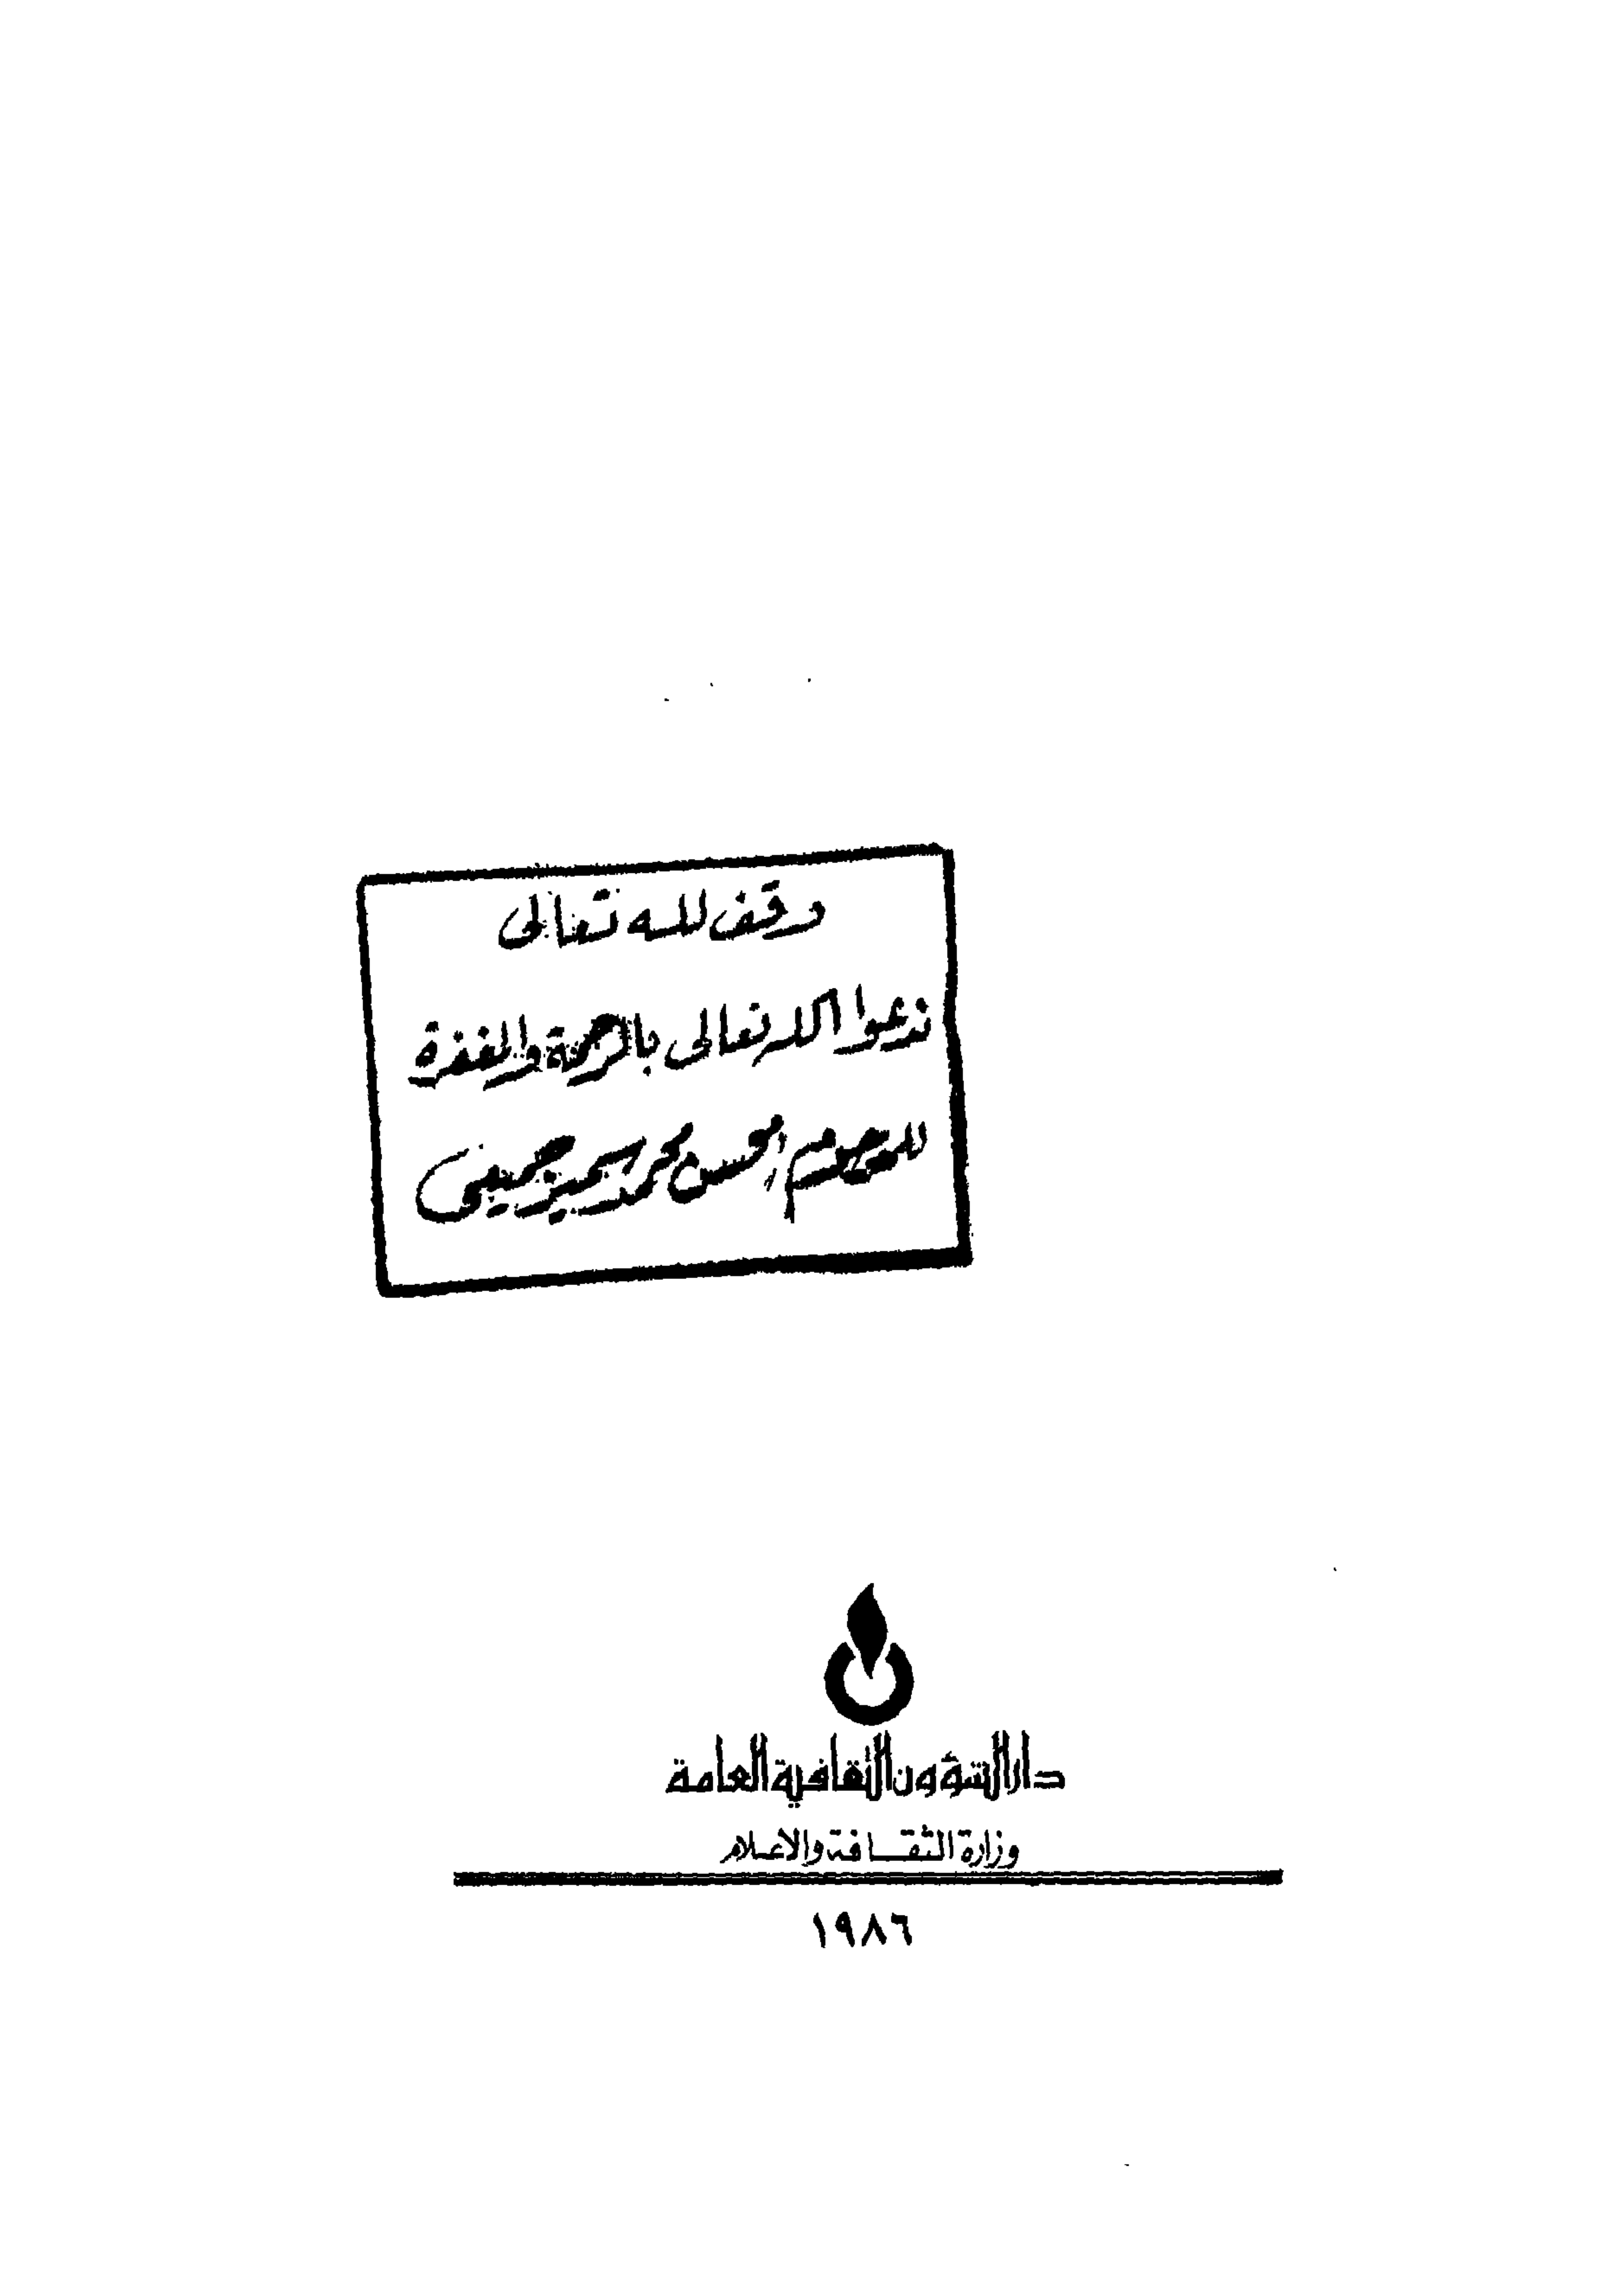 وقف لله تعالى
ندعوا الله تعالى بالرحمة والمغفرة
للمرحوم المحسن محمد سمير حسيني
دار الشؤون الثقافية العامة
وزارة الثقافة والاعلام
١٩٨٦